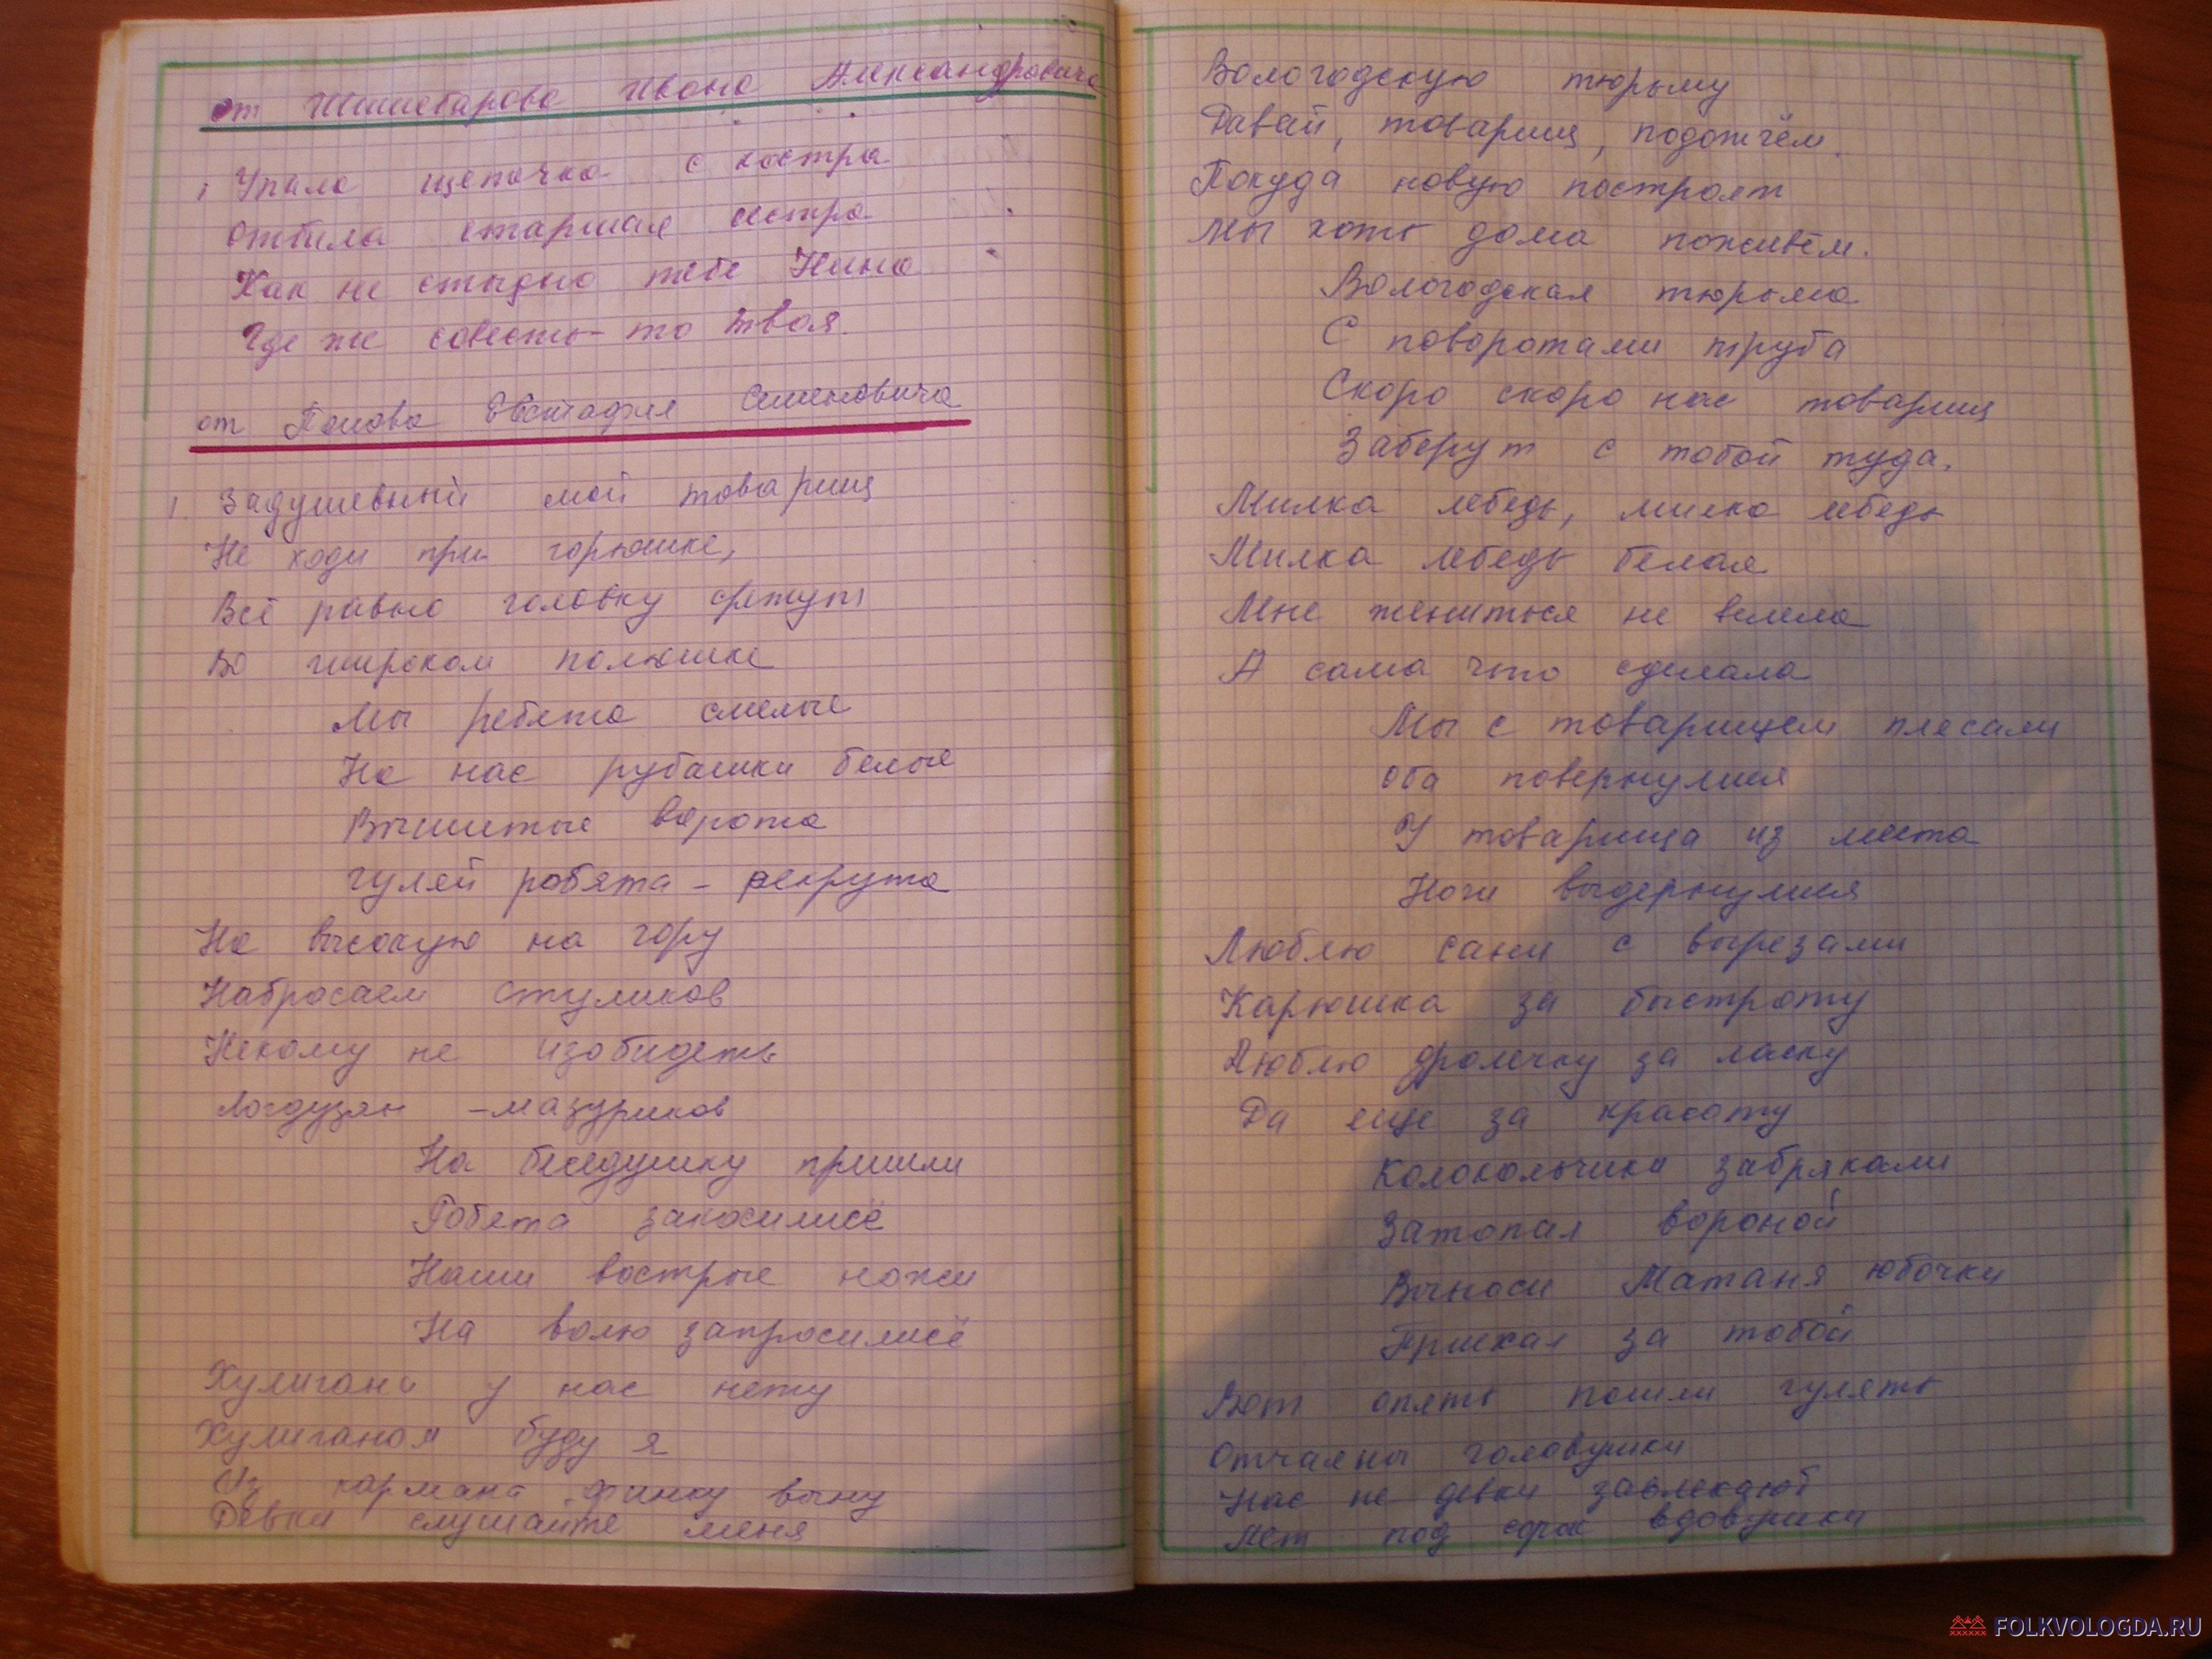 от Шишебарова Ивана Александровича
1 Упала щепочка с костра
Отбила старшая сестра
Как не стыдно тебе Нина
Где же совесть-то твоя.
от Попова Евстафия Семеновича
1. Задушевный мой товарищ
Не ходи при горюшке,
Всё равно головку срежут
Во широком полюшке
Мы ребята смелые
На нас рубашки белые
Вышитые ворота
Гуляй робята - рекрута
На высокую на гору
Набросаем стуликов
Некому не изобидеть
Логдузян - мазуриков
На беседушку пришли
Робята закосилисё
Наши вострые ножи
На волю запросилисё
Хулигана у нас нету
Хулиганом буду я
Из кармана финку выну
Девки слушайте меня
Вологодскую тюрьму
Давай, товарищ, подожгём.
Покуда новую построят
Мы хоть дома поживём.
Вологодская тюрьма
С поворотами труба
Скоро скоро нас товарищ
Заберут с тобой туда.
Милка лебедь, милка лебедь
Милка лебедь белая
Мне жениться не велела
А сама что сделала
Мы с товарищем плесали
Оба повернулися
У товарища из места
Ноги выдернулися
Люблю сани с вырезами
Карюшка за быстроту
Люблю дролечку за ласку
Да еще за красоту
Колокольчики забрякали
Затопал вороной
Выноси Матаня юбочки
Приехал за тобой
Вот опять пошли гулять
Отчаяны головушки
Нас не девки завлекают
Лет под сорок вдовушки
FOLKVOLOGDA.RU